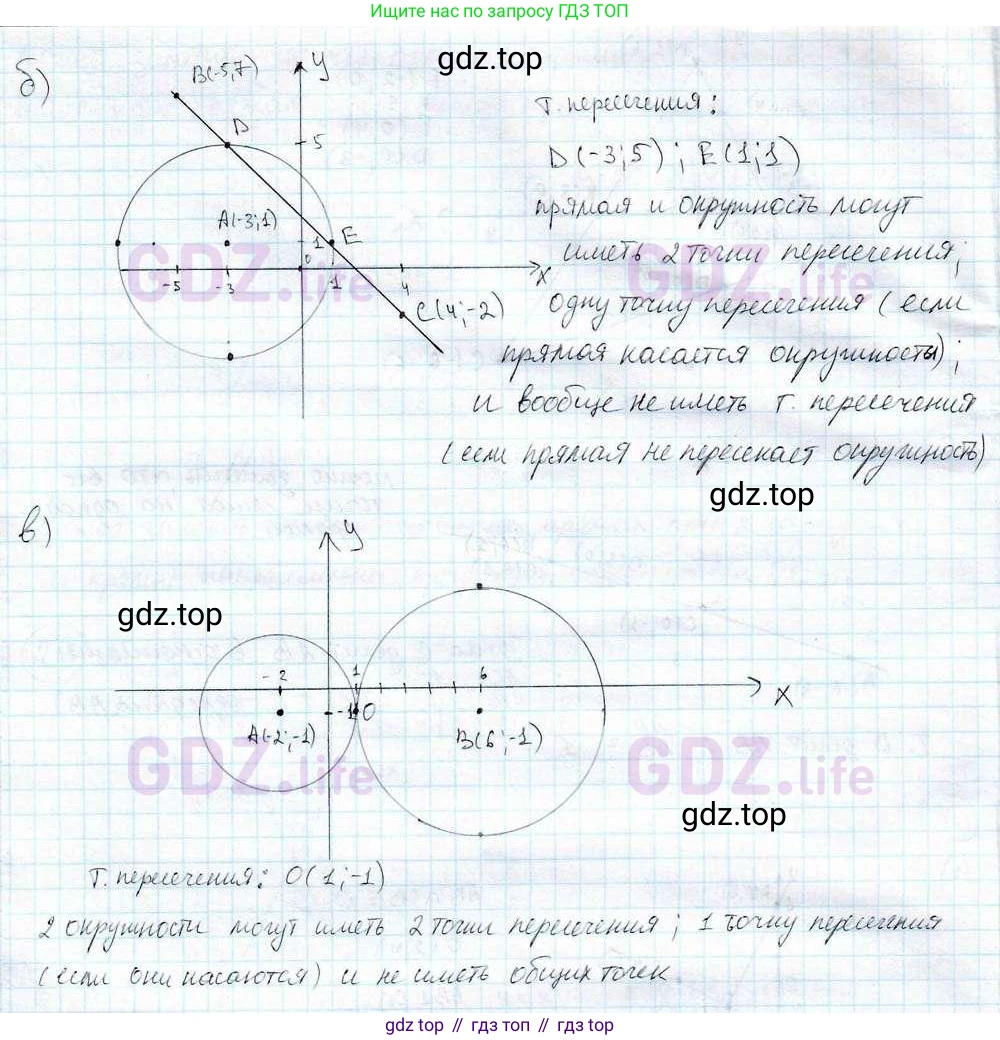 Ищите по запросу ГДЗ ТОП
gdz.top
б)
B(-5;7)
y
т. пересечения:
D
5
D(-3;5) ; E(1;1)
A(-3;1)
1
E
прямая и окружность могут
0
x
иметь 2 точки пересечения;
-5
-3
1
4
GDZ.life
GDZ.life
C(4;-2)
одну точку пересечения (если
прямая касается окружносты);
и вообще не иметь т. пересечения
(если прямая не пересекает окружность)
gdz.top
в)
y
gdz.top
-2
1
6
x
-1
O
A(-2;-1)
B(6;-1)
GDZ.life
GDZ.life
gdz.top
т. пересечения: O(1;-1)
2 окружности могут иметь 2 точки пересечения; 1 точку пересечения
(если они касаются) и не иметь общих точек.
gdz.top // гдз топ // gdz.top